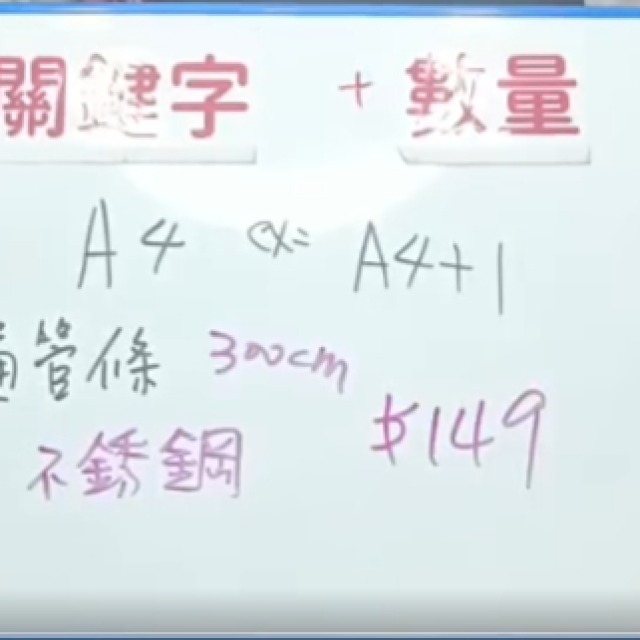 關鍵字 + 數量
A4 ex= A4+1
管條 300cm
不銹鋼 $149